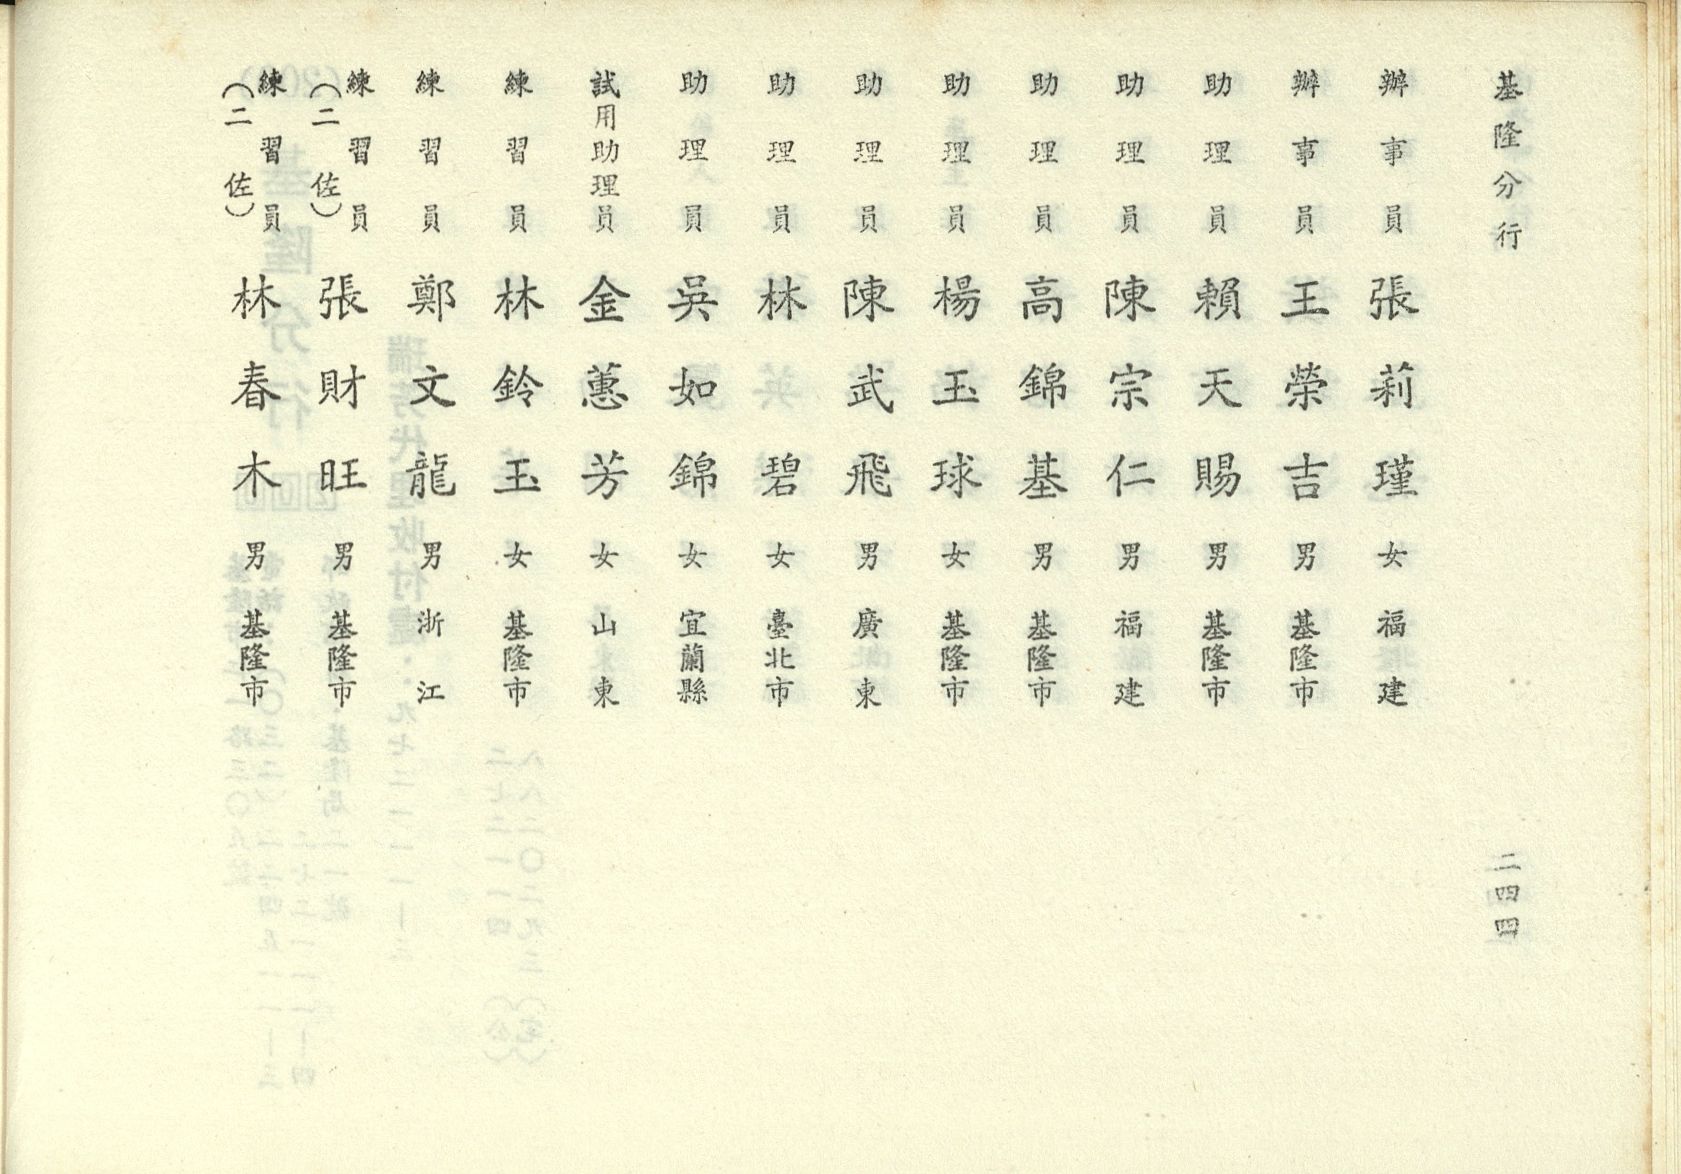 基隆分行
二四四
辦事員 張莉瑾 女 福建
辦事員 王榮吉 男 基隆市
助理員 賴天賜 男 基隆市
助理員 陳宗仁 男 福建
助理員 高錦基 男 基隆市
助理員 楊玉球 女 基隆市
助理員 陳武飛 男 廣東
助理員 林碧 女 臺北市
助理員 吳如錦 女 宜蘭縣
試用助理員 金蕙芳 女 山東
練習員 林鈴玉 女 基隆市
練習員 鄭文龍 男 浙江
練習員(二佐) 張財旺 男 基隆市
練習員(二佐) 林春木 男 基隆市